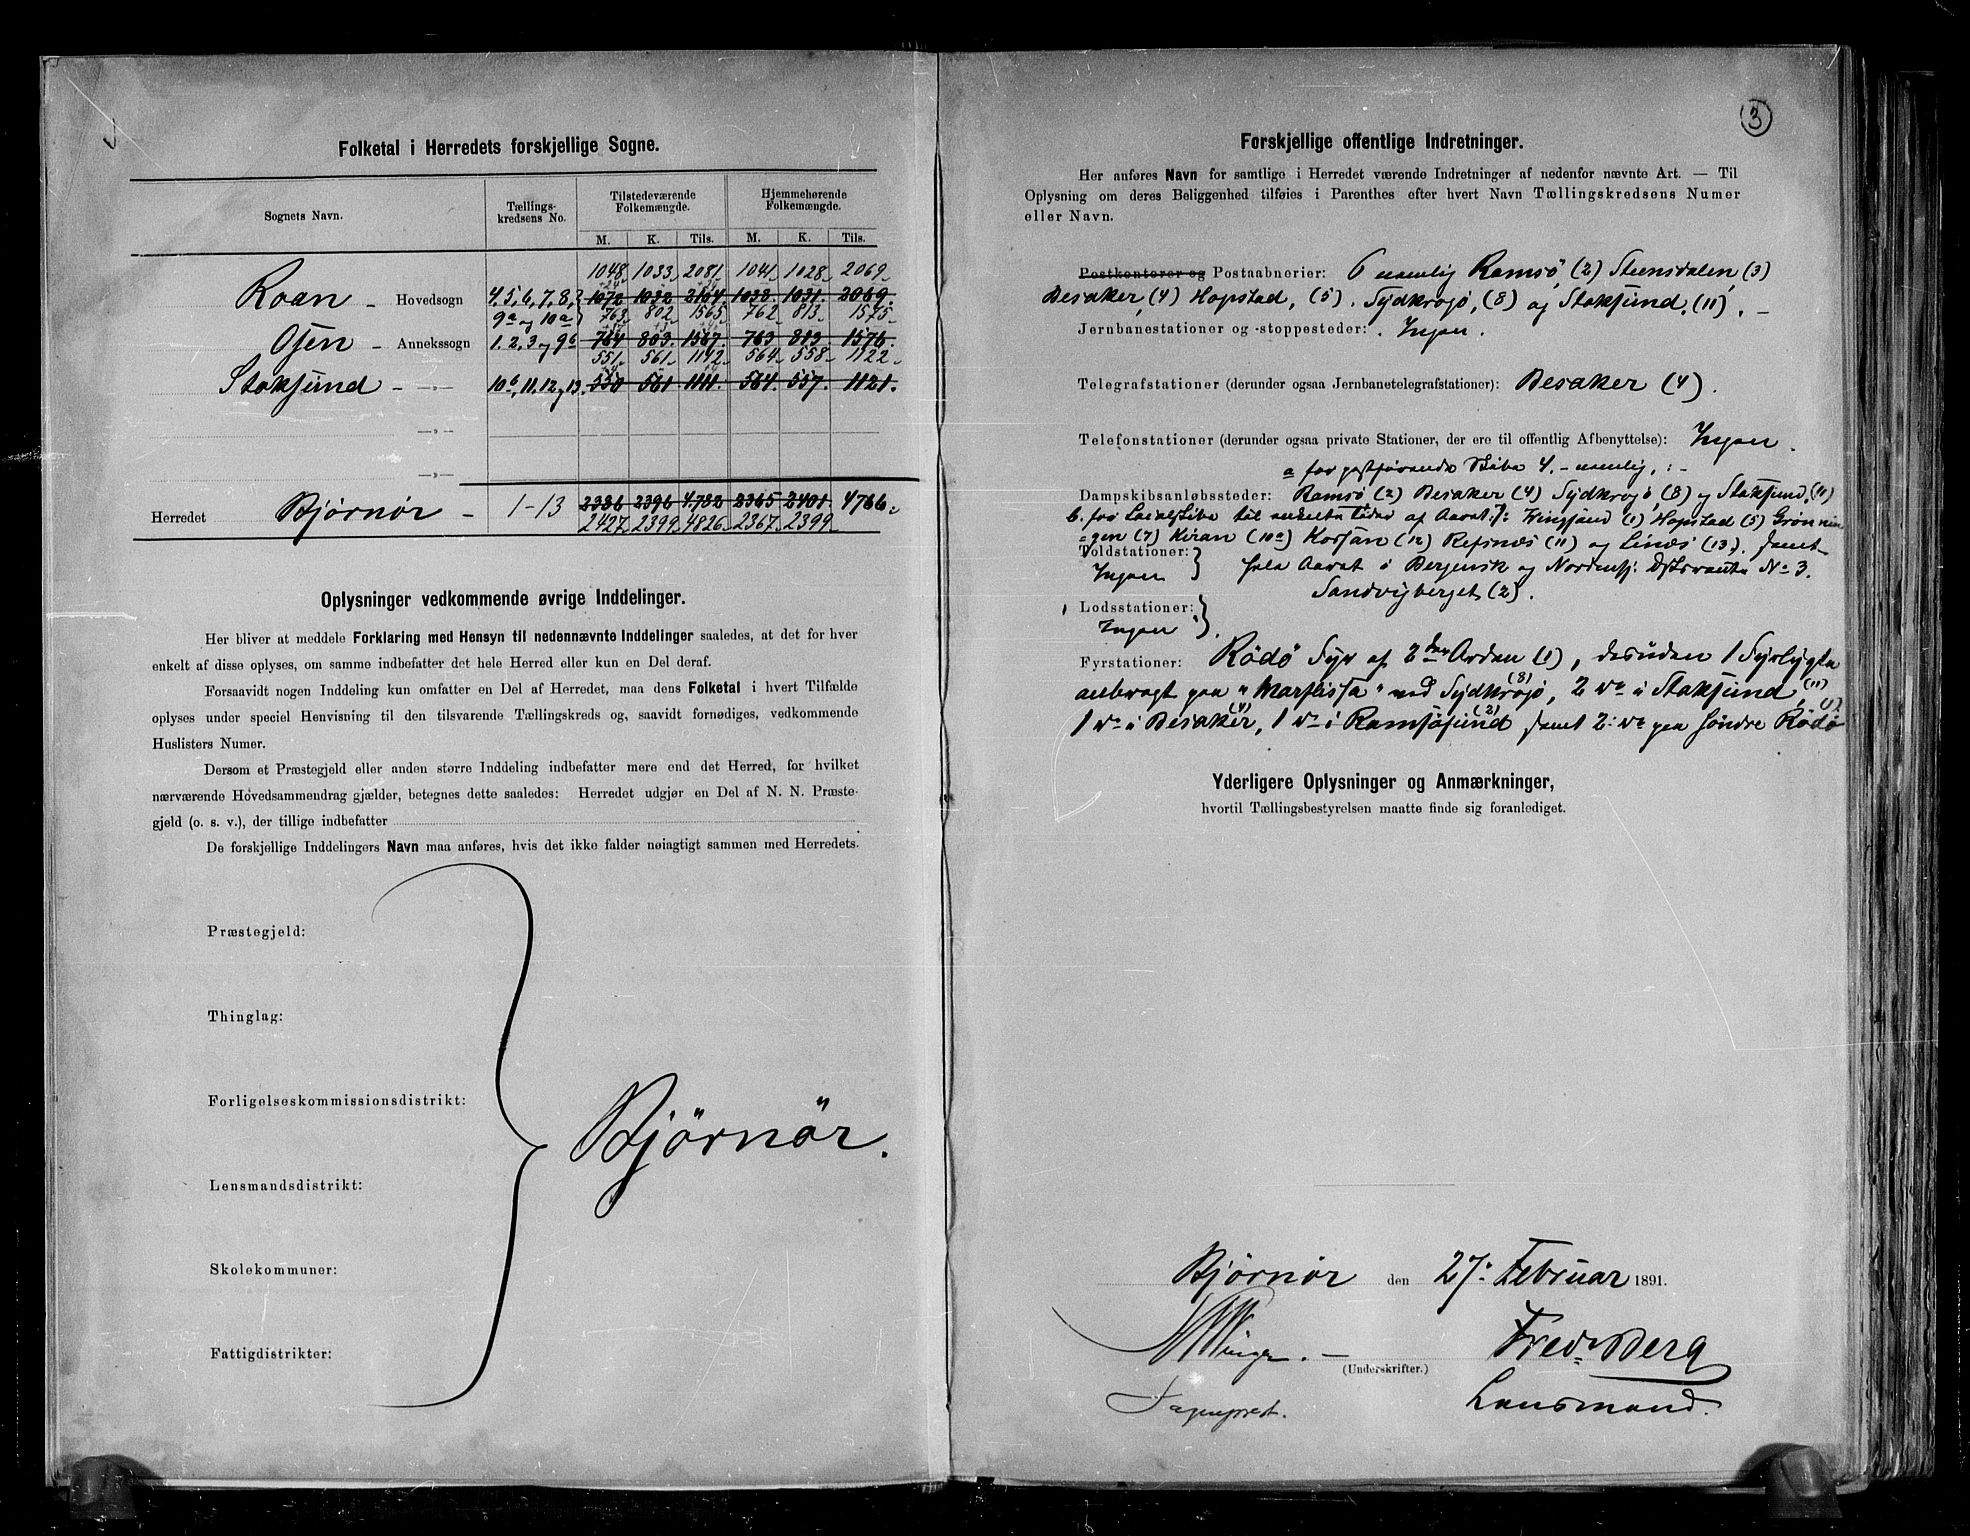 Folketal i Herredets forskjellige Sogne.
Sognets Navn. Tællings-kredsens No. Tilstedeværende Folkemængde. Hjemmehørende Folkemængde.
M. K. Tils. M. K. Tils.
1048 1033 2081 1041 1028 2069
Roan - Hovedsogn 4. 5, 6, 7, 8, 1072 1032 2104 1038 1031 2069
9a og 10a 763 802 1565 762 813 1575
Osen - Annekssogn 1. 2. 3 og 9b 764 803 1567 763 813 1576
551 561 1112 564 558 1122
Stoksund - —„— 10b, 11, 12 og 13. 550 561 1111. 564. 557. 1121.
—„—
—„—
Herredet Björnör - 1-13 2386 2396 4782 2365 2401. 4766.
2427 2399 4826 2367 2399
Oplysninger vedkommende øvrige Inddelinger.
Her bliver at meddele Forklaring med Hensyn til nedennævnte Inddelinger saaledes, at det for hver
enkelt af disse oplyses, om samme indbefatter det hele Herred eller kun en Del deraf.
Forsaavidt nogen Inddeling kun omfatter en Del af Herredet, maa dens Folketal i hvert Tilfælde
oplyses under speciel Henvisning til den tilsvarende Tællingskreds og, saavidt fornødiges, vedkommende
Huslisters Numer.
Dersom et Præstegjeld eller anden større Inddeling indbefatter mere end det Herred, for hvilket
nærværende Hovedsammendrag gjælder, betegnes dette saaledes: Herredet udgjør en Del af N. N. Præste-
gjeld (o. s. v.), der tillige indbefatter
De forskjellige Inddelingers Navn maa anføres, hvis det ikke falder nøiagtigt sammen med Herredets.
Præstegjeld:
Thinglag:
Forligelseskommissionsdistrikt:
Björnör.
Lensmandsdistrikt:
Skolekommuner:
Fattigdistrikter:
3
Forskjellige offentlige Indretninger.
Her anføres Navn for samtlige i Herredet værende Indretninger af nedenfor nævnte Art. — Til
Oplysning om deres Beliggenhed tilføies i Parenthes efter hvert Navn Tællingskredsens Numer
eller Navn.
Postkontorer og Postaabnerier: 6 nemlig Ramsö, (2) Steinsdalen, (3)
Besaker, (4) Hopstad, (5). Sydkrogö, (8) og Stoksund. (11). -
Jernbanestationer og -stoppesteder: . Ingen.
Telegrafstationer (derunder ogsaa Jernbanetelegrafstationer): Besaker (4).
Telefonstationer (derunder ogsaa private Stationer, der ere til offentlig Afbenyttelse): Ingen.
a for postförende Skibe 4. - nemlig, : -
Dampskibsanløbssteder: Ramsö (2) Besaker (4) Sydkrogö, (8) og Stoksund, (11)
b. for Localskibe til enkelte tider af Aaret: Vingsand (1) Hopstad (5) Grönnin
gen (7) Kiran (10a) Korsan (12) Refsnæs (11) og Linæs (13.) samt
Toldstationer: hele Aaret i Bergensk og Nordenfj:  No 3.
Ingen Sandvigberget (2).
Lodsstationer:
Ingen
Fyrstationer: Rödö Fyr af 2den Orden (1), desuden 1 Fyrlygte
anbragt paa "Marflessa" ved Sydkrogö, (8) 2 do i Stoksund, (11)
1 do i Besaker, (4) 1 do i Ramsösund (2) samt 2: do paa söndre Rödö (1).
Yderligere Oplysninger og Anmærkninger,
hvortil Tællingsbestyrelsen maatte finde sig foranlediget.
Björnör den 27: Februar 1891.
Winge. - Fredr Berg
(Underskrifter.)
Sogneprest. Lensmand.